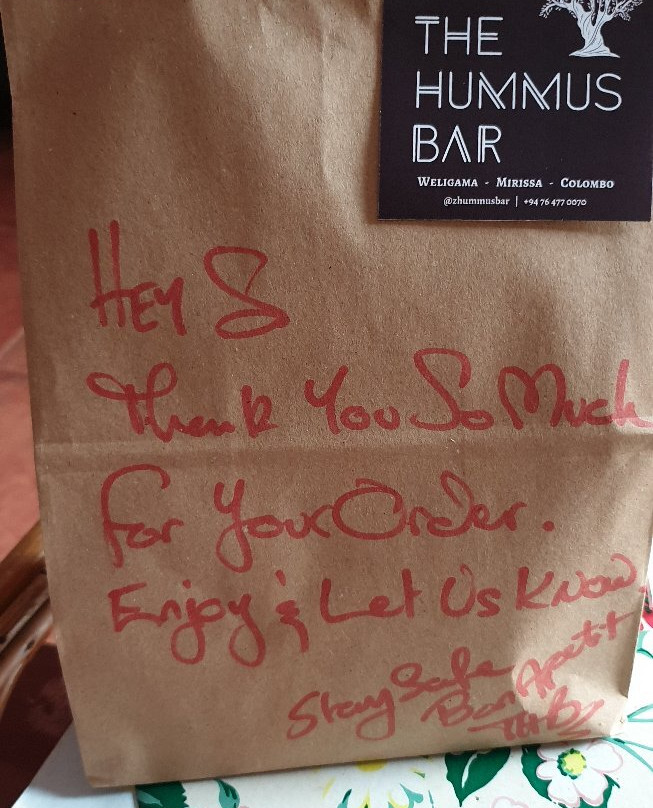 THE
HUMMUS
BAR
WELIGAMA - MIRISSA - COLOMBO
@zhummusbar | +94 76 477 0070
HEY S
Thank You So Much
For Your Order.
Enjoy & Let Us Know.
Stay Safe
Bon Apetit
THB